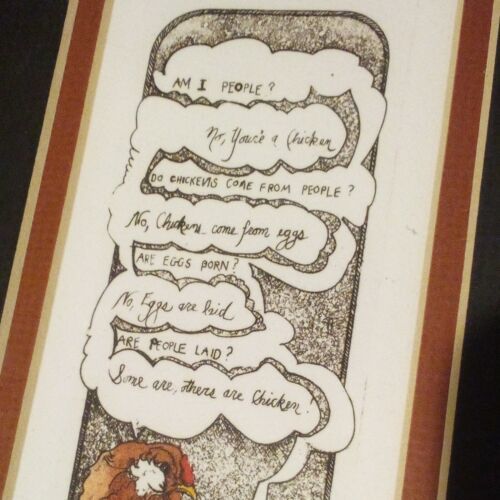 AM I PEOPLE?
No, You're a Chicken
DO CHICKENS COME FROM PEOPLE?
No, Chickens come from eggs
ARE EGGS BORN?
No, Eggs are laid
ARE PEOPLE LAID?
Some are, others are Chicken!